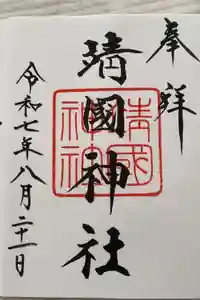 奉拜
靖國神社
靖國
神社
令和七年八月二十一日